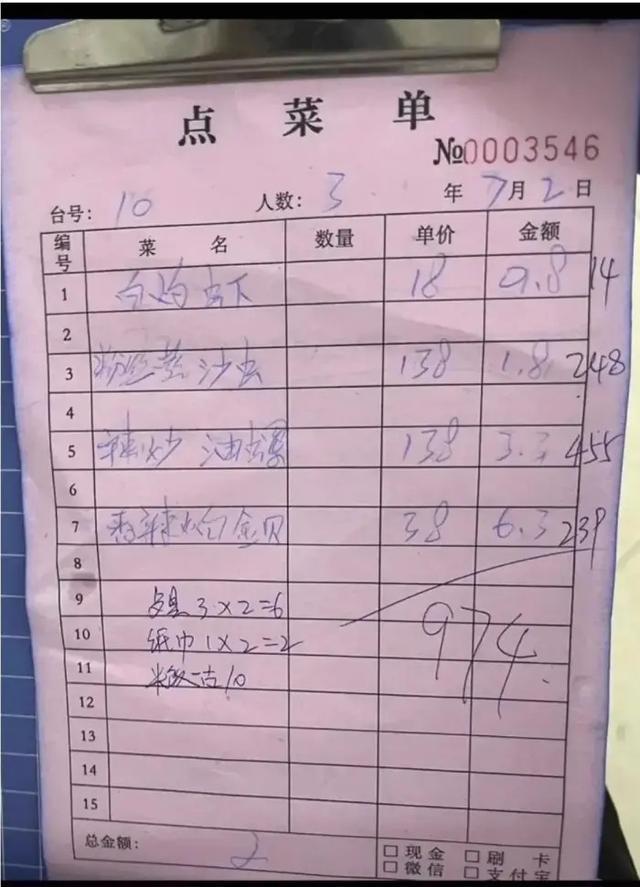 点菜单
№0003546
台号: 10 人数: 3 年 7月2日
编号 菜名 数量 单价 金额
1 白灼虫下 18 0.8 14
2
3 粉丝蒸沙虫 138 1.8 248
4
5 辣炒油螺 138 3.3 455
6
7 香辣炒白金贝 38 6.3 239
8
9 3×2=6
10 纸巾1×2=2 974
11 米饭一古10
12
13
14
15
总金额: 2 □现金 □刷卡
□微信 □支付宝